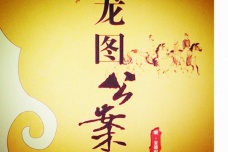 龙图公案